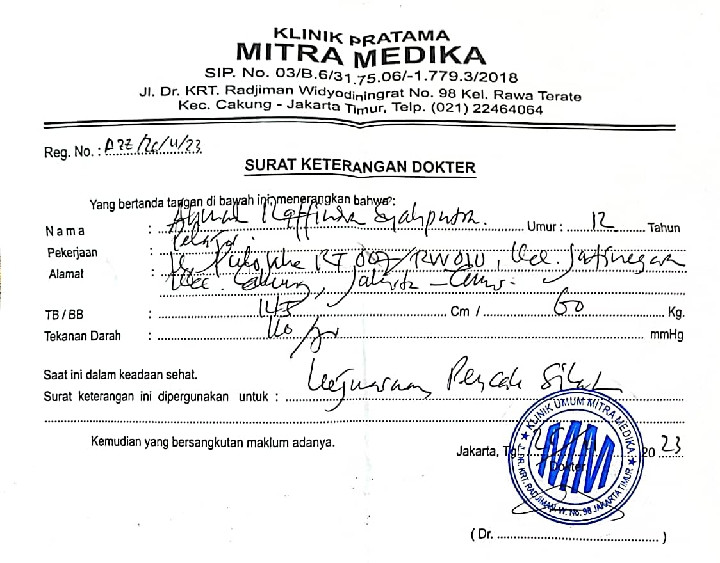 KLINIK PRATAMA
MITRA MEDIKA
SIP. No. 03/B.6/31.75.06/-1.779.3/2018
Jl. Dr. KRT. Radjiman Widyodiningrat No. 98 Kel. Rawa Terate
Kec. Cakung - Jakarta Timur, Telp. (021) 22464064
Reg. No. :
SURAT KETERANGAN DOKTER
Yang bertanda tangan di bawah ini menerangkan bahwa :
Nama : Syahputra. Umur : 12 Tahun
Pekerjaan : Pelajar.
Alamat : RT 007/RW 010, Kel. Jatinegara
Kec. Cakung, Jakarta - Timur.
TB / BB : 145 Cm / 60 Kg.
Tekanan Darah : 110/ mmHg
Saat ini dalam keadaan sehat.
Surat keterangan ini dipergunakan untuk : Kejuaraan Pencak Silat
Kemudian yang bersangkutan maklum adanya.
Jakarta, Tgl 2023
Dokter
KLINIK UMUM MITRA MEDIKA
MM
JL. DR. KRT. RADJIMAN W. No. 98 JAKARTA TIMUR
(Dr. )